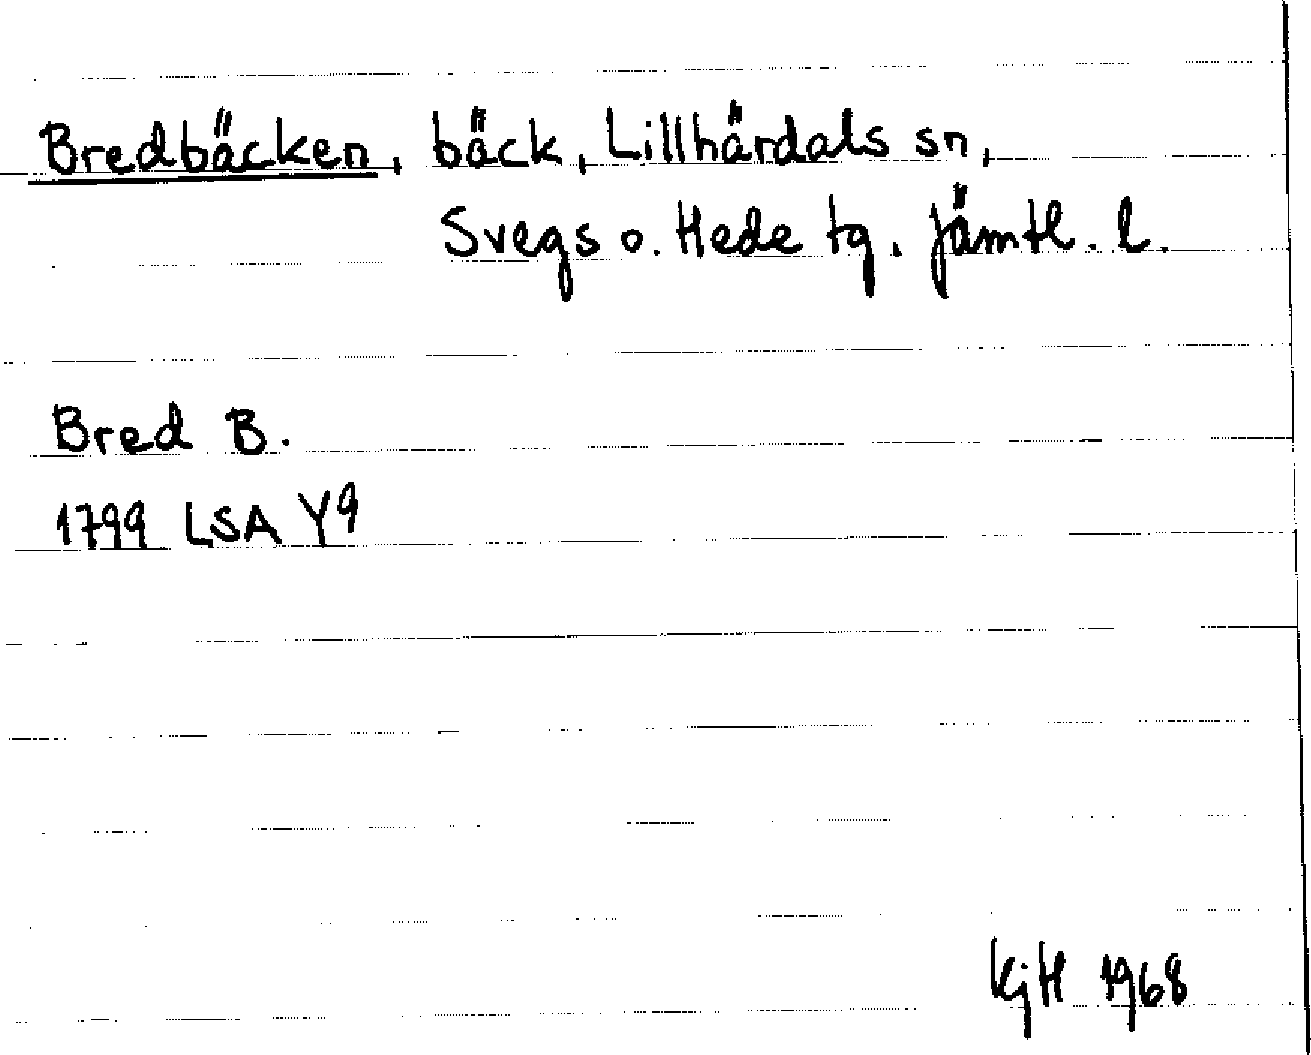 Bredbäcken, bäck, Lillhärdals sn,
Svegs o. Hede tg. Jämtl. l.
Bred B.
1799 LSA Y9
KjH 1968